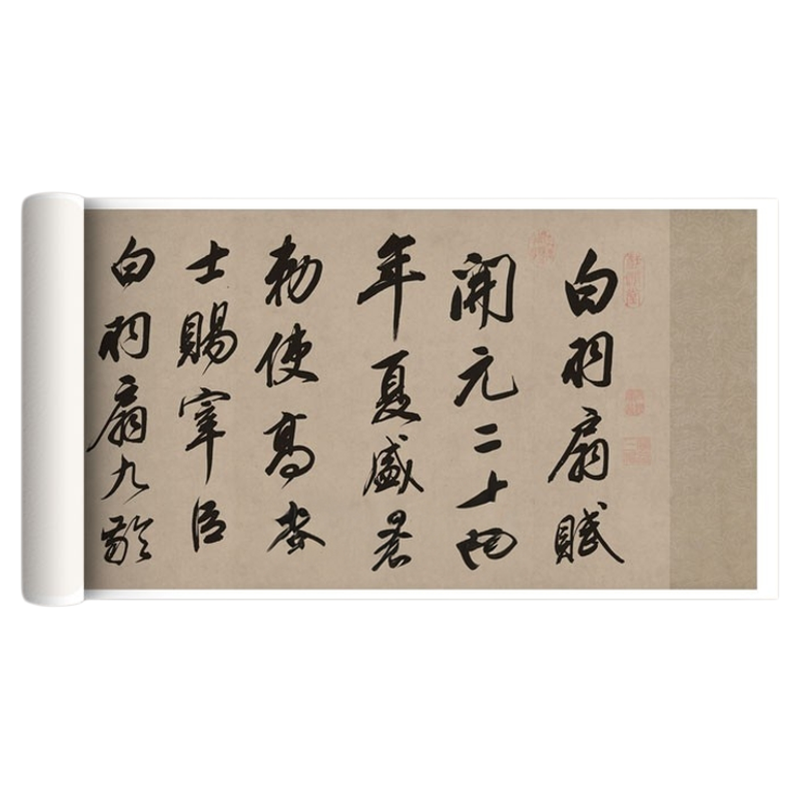 白羽扇賦
開元二十四
年夏盛暑
勅使高
士賜宰臣
白羽扇九齡